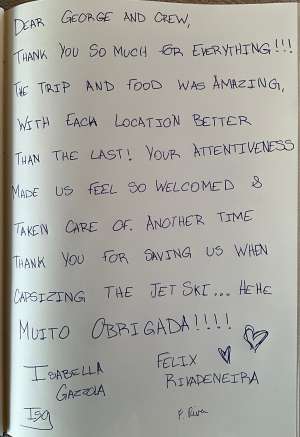 DEAR GEORGE AND CREW,
THANK YOU SO MUCH FOR EVERYTHING!!!
THE TRIP AND FOOD WAS AMAZING,
WITH EACH LOCATION BETTER
THAN THE LAST! YOUR ATTENTIVENESS
MADE US FEEL SO WELCOMED &
TAKEN CARE OF. ANOTHER TIME
THANK YOU FOR SAVING US WHEN
CAPSIZING THE JET SKI... HEHE
MUITO OBRIGADA!!!!
ISABELLA GAZZOLA
FELIX RIVADENEIRA